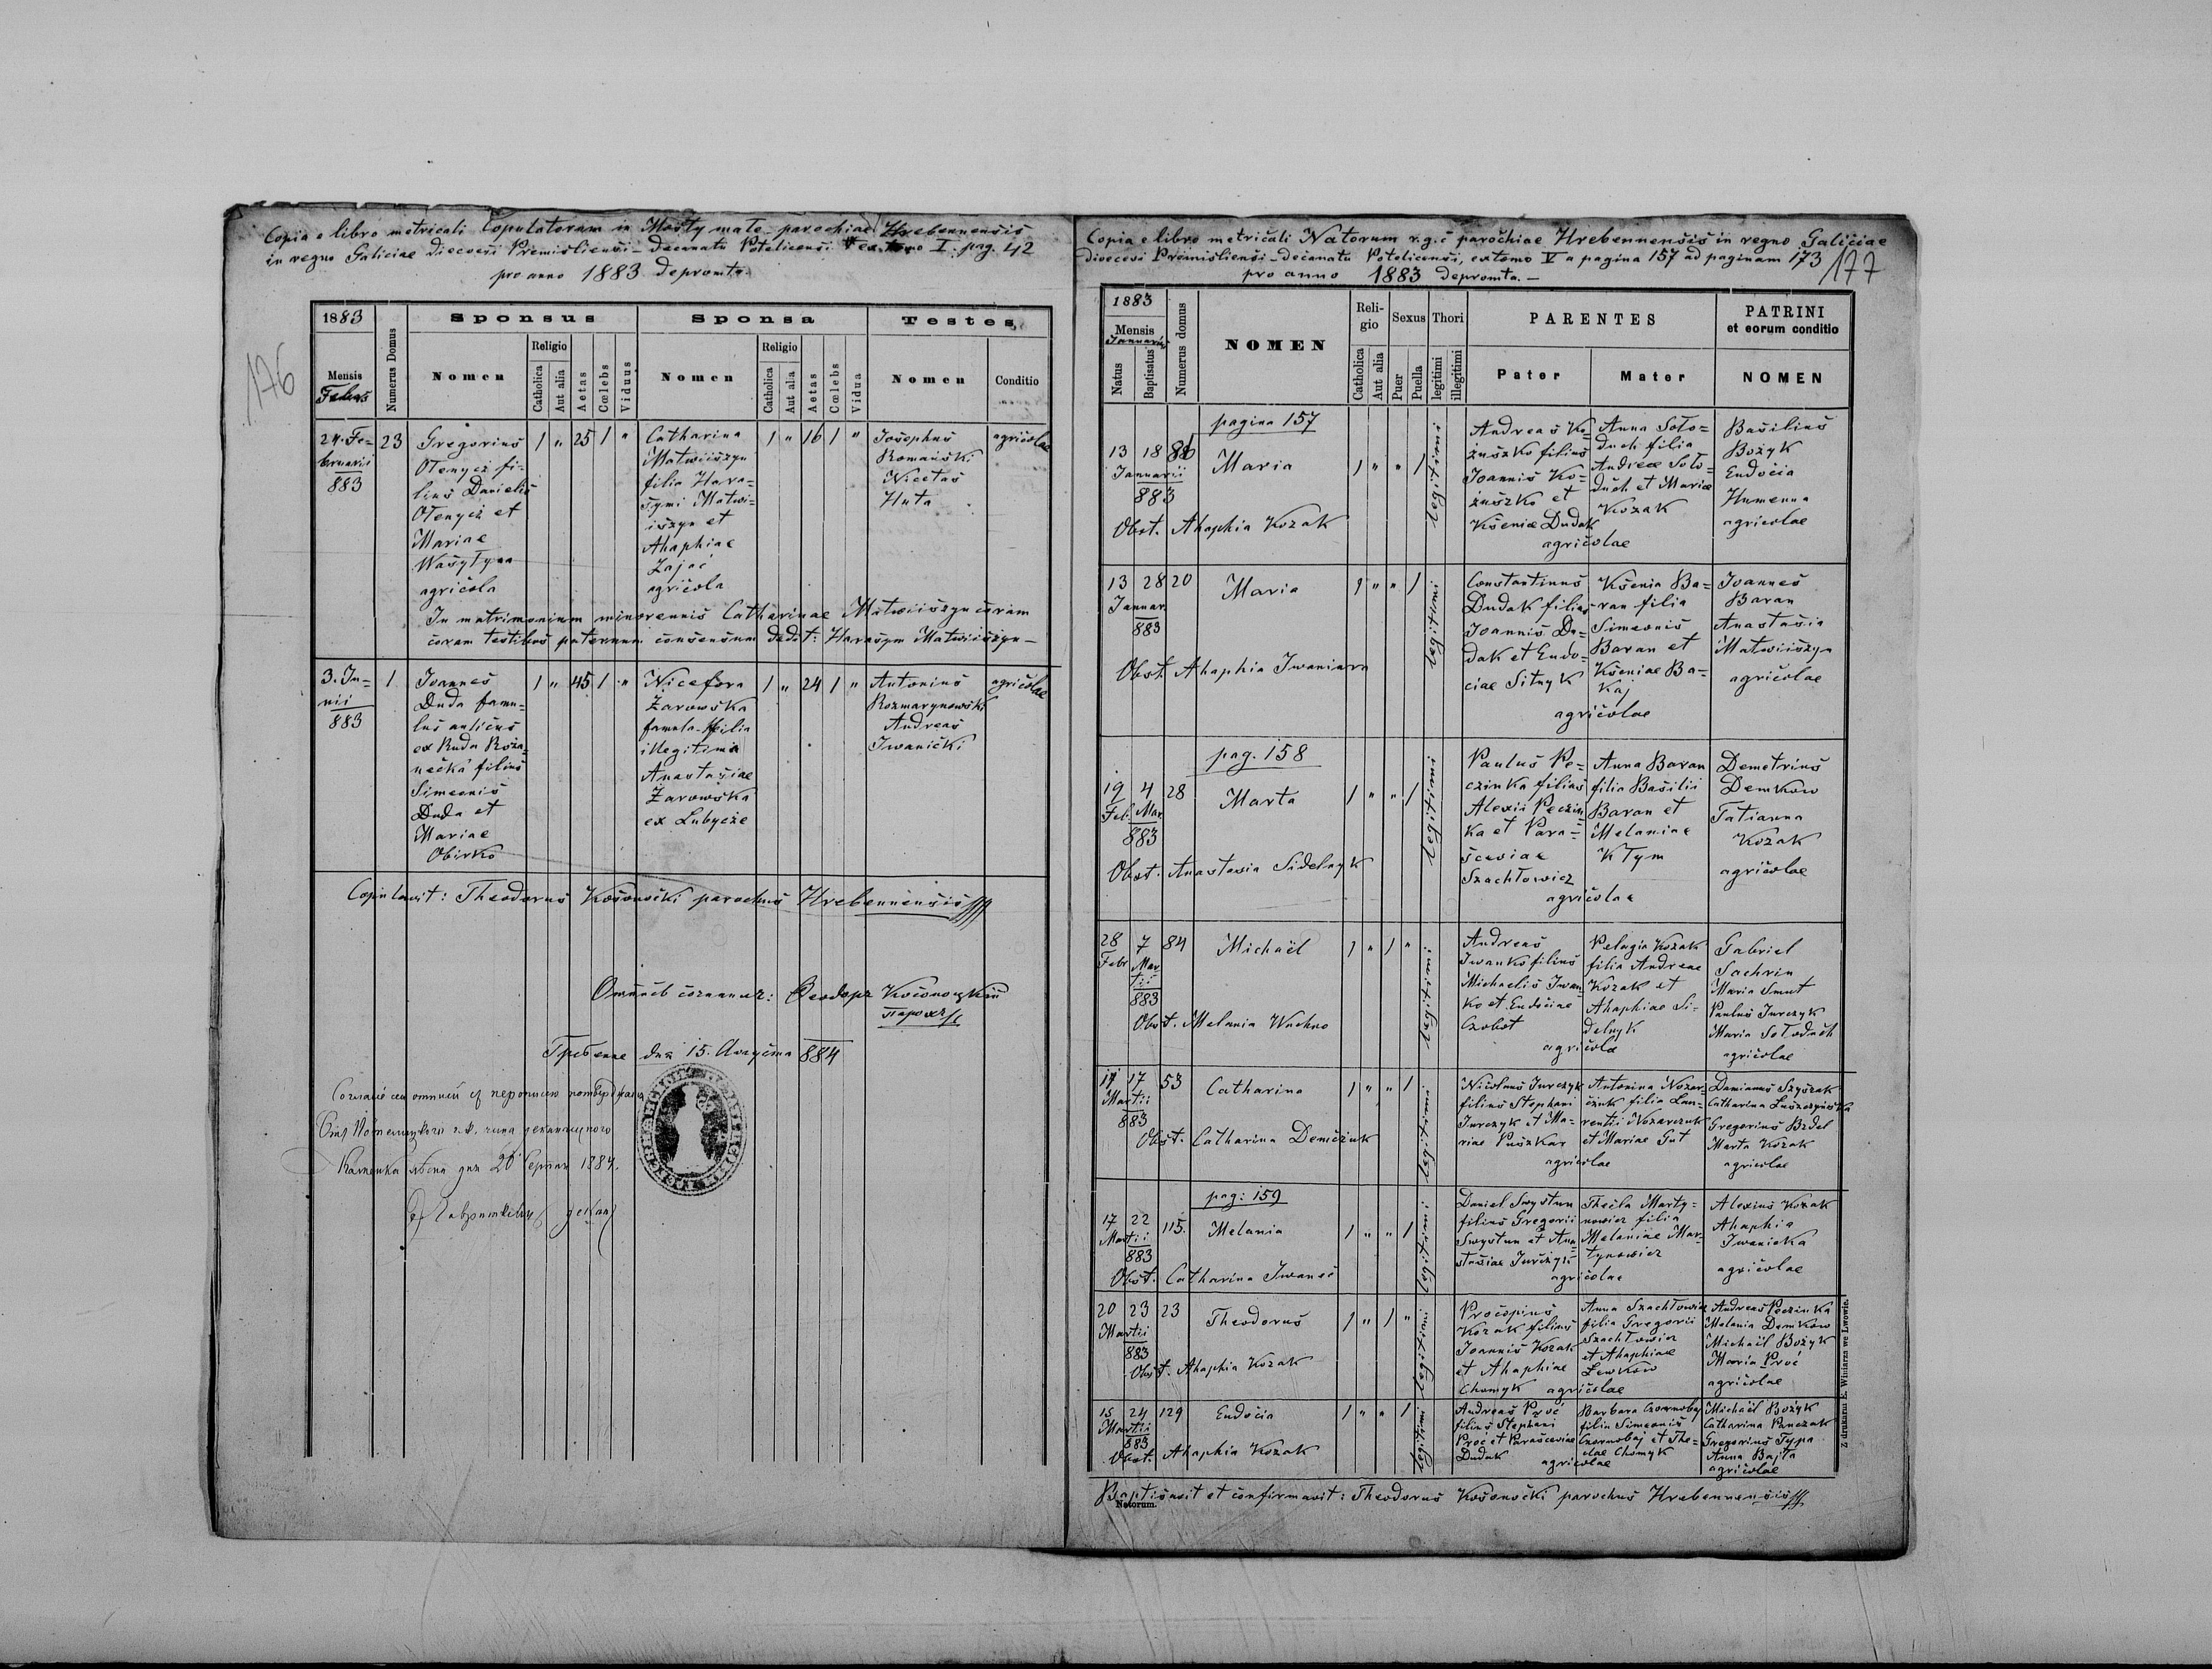 Copia e libro metricali Copulatorum in Mosty małe parochiae Hrebennensis
in regno Galiciae dioecesi Premisliensi - decanatu Potelicensi ex tomo I. pag. 42
pro anno 1883 depromta.
176
1883
Mensis
Numerus Domus
Sponsus
Nomen
Religio
Catholica
Aut alia
Aetas
Cœlebs
Viduus
Sponsa
Nomen
Religio
Catholica
Aut alia
Aetas
Cœlebs
Vidua
Testes
Nomen
Conditio
24. Fe=
bruarii
883
23
Gregorius
Ołenycz fi=
lius Danielis
Ołenycz et
Mariae
Wasyłyna
agricola
1 " 25 1 "
Catharina
Matwiiszyn
filia Hara=
symi Matwi=
iszyn et
Ahaphiae
Zając
agricola
1 " 16 1 "
Josephus
Romański
Nicetas
Huta
agricolae
In matrimonium minorennis Catharinae Matwiiszyn coram
coram testibus paternum consensum dedit: Harasym Matwiiszyn -
3. Ju=
nii
883
1
Joannes
Duda famu=
lus
ex Ruda Roża=
necka filius
Simeonis
Duda et
Mariae
Obirko
1 " 45 1 "
Nicefora
Żarowska
famula filia
illegitima
Anastasiae
Żarowska
ex Lubycze
1 " 24 1 "
Antonius
Rozmarynowski
Andreas
Iwanicki
agricolae
Copulavit: Theodorus Kosonocki parochus Hrebennensis
Ѳеодоръ Косоноцкій
парохъ
Гребенне дня 15. Августа 884
Каменка лѣсна дня 20 Серпня 1884.
деканъ
Copia e libro metricali Natorum r.g.c parochiae Hrebennensis in regno Galiciae
dioecesi Premisliensi - decanatu Potelicensi, ex tomo V a pagina 157 ad paginam 173
pro anno 1883 depromta. -
177
1883
Mensis
Januarii
Natus
Baptisatus
Numerus domus
NOMEN
Reli-
gio
Catholica
Aut alia
Sexus
Puer
Puella
Thori
legitimi
illegitimi
PARENTES
Pater
Mater
PATRINI
et eorum conditio
NOMEN
pagina 157
13 18
Januarii
883
Maria
1 " " 1
legitimi
Andreas Ko=
żuszko filius
Joannis Ko=
żuszko et
Kseniae Dudak
Anna Soło=
duch filia
Andreae Soło=
duch et Mariae
Kozak
agricolae
Basilius
Bożyk
Eudocia
Humenna
agricolae
Obst. Ahaphia Kozak
13 28 20
Januar
883
Maria
1 " " 1
legitimi
Constantinus
Dudak filius
Joannis Du=
dak et Eudo=
ciae Sitnyk
Ksenia Ba=
ran filia
Simeonis
Baran et
Kseniae Ba=
kaj
agricolae
Joannes
Baran
Anastasia
Matwiiszyn
agricolae
Obst. Ahaphia Iwaniura
pag. 158
19 4 28
Feb. Mar
883
Marta
1 " " 1
legitimi
Paulus Pe=
czinka filius
Alexii Peczin
ka et Para=
sceviae
Szachłowicz
Anna Baran
filia Basilii
Baran et
Melaniae
Kłym
agricolae
Demetrius
Demkow
Tatianna
Kozak
agricolae
Obst. Anastasia Sidelnyk
28 7 84
Febr Mar
tii
883
Michaël
1 " 1 "
legitimi
Andreas
Iwanko filius
Michaelis Iwan=
ko et Eudociae
Czobot
Pelagia Kozak
filia Andreae
Kozak et
Ahaphiae Si=
delnyk
agricola
Gabriel
Sachrin
Maria Smut
Paulus Jurczyk
Maria Sołoduch
agricolae
Obst. Melania Wachno
17 17 53
Martii
883
Catharina
1 " " 1
legitimi
Nicolaus Jurczyk
filius Stephani
Jurczyk et Ma=
riae Puszkar
Antonina Nazar=
czuk filia Lau=
rentii Nazarczuk
et Mariae Gut
agricolae
Damianus Szyszak
Catharina Luszczyńska
Gregorius Bzdel
Marta Kozak
agricolae
Obst. Catharina Demczuk
pag: 159
17 22 115.
Martii
883
Melania
1 " " 1
legitimi
Daniel Swystun
filius Gregorii
Swystun et Ana
stasiae Jurczyk
Thecla Marty=
nowicz filia
Melaniae Mar=
tynowicz
agricolae
Alexius Kozak
Ahaphia
Iwanicka
agricolae
Obst. Catharina Iwanec
20 23 23
Martii
883
Theodorus
1 " 1 "
legitimi
Procopius
Kozak filius
Joannis Kozak
et Ahaphiae
Chomyk
Anna Szachłowicz
filia Gregorii
Szachłowicz
et Ahaphiae
Lewkow
agricolae
Andreas Peczinka
Melania Demkow
Michaël Bożyk
Maria Proć
agricolae
Obst. Ahaphia Kozak
15 24 129
Martii
883
Eudocia
1 " " 1
legitimi
Andreas Proć
filius Stephani
Proć et Parasceviae
Dudak
Barbara Czornobaj
filia Simeonis
Czornobaj et The=
clae Chomyk
agricolae
Michaël Bożyk
Catharina Panczak
Gregorius Typa
Anna Bajta
agricolae
Obst. Ahaphia Kozak
Baptisavit et confirmavit: Theodorus Kosonocki parochus Hrebennensis
Natorum.
Z drukarni E. Winiarza we Lwowie.